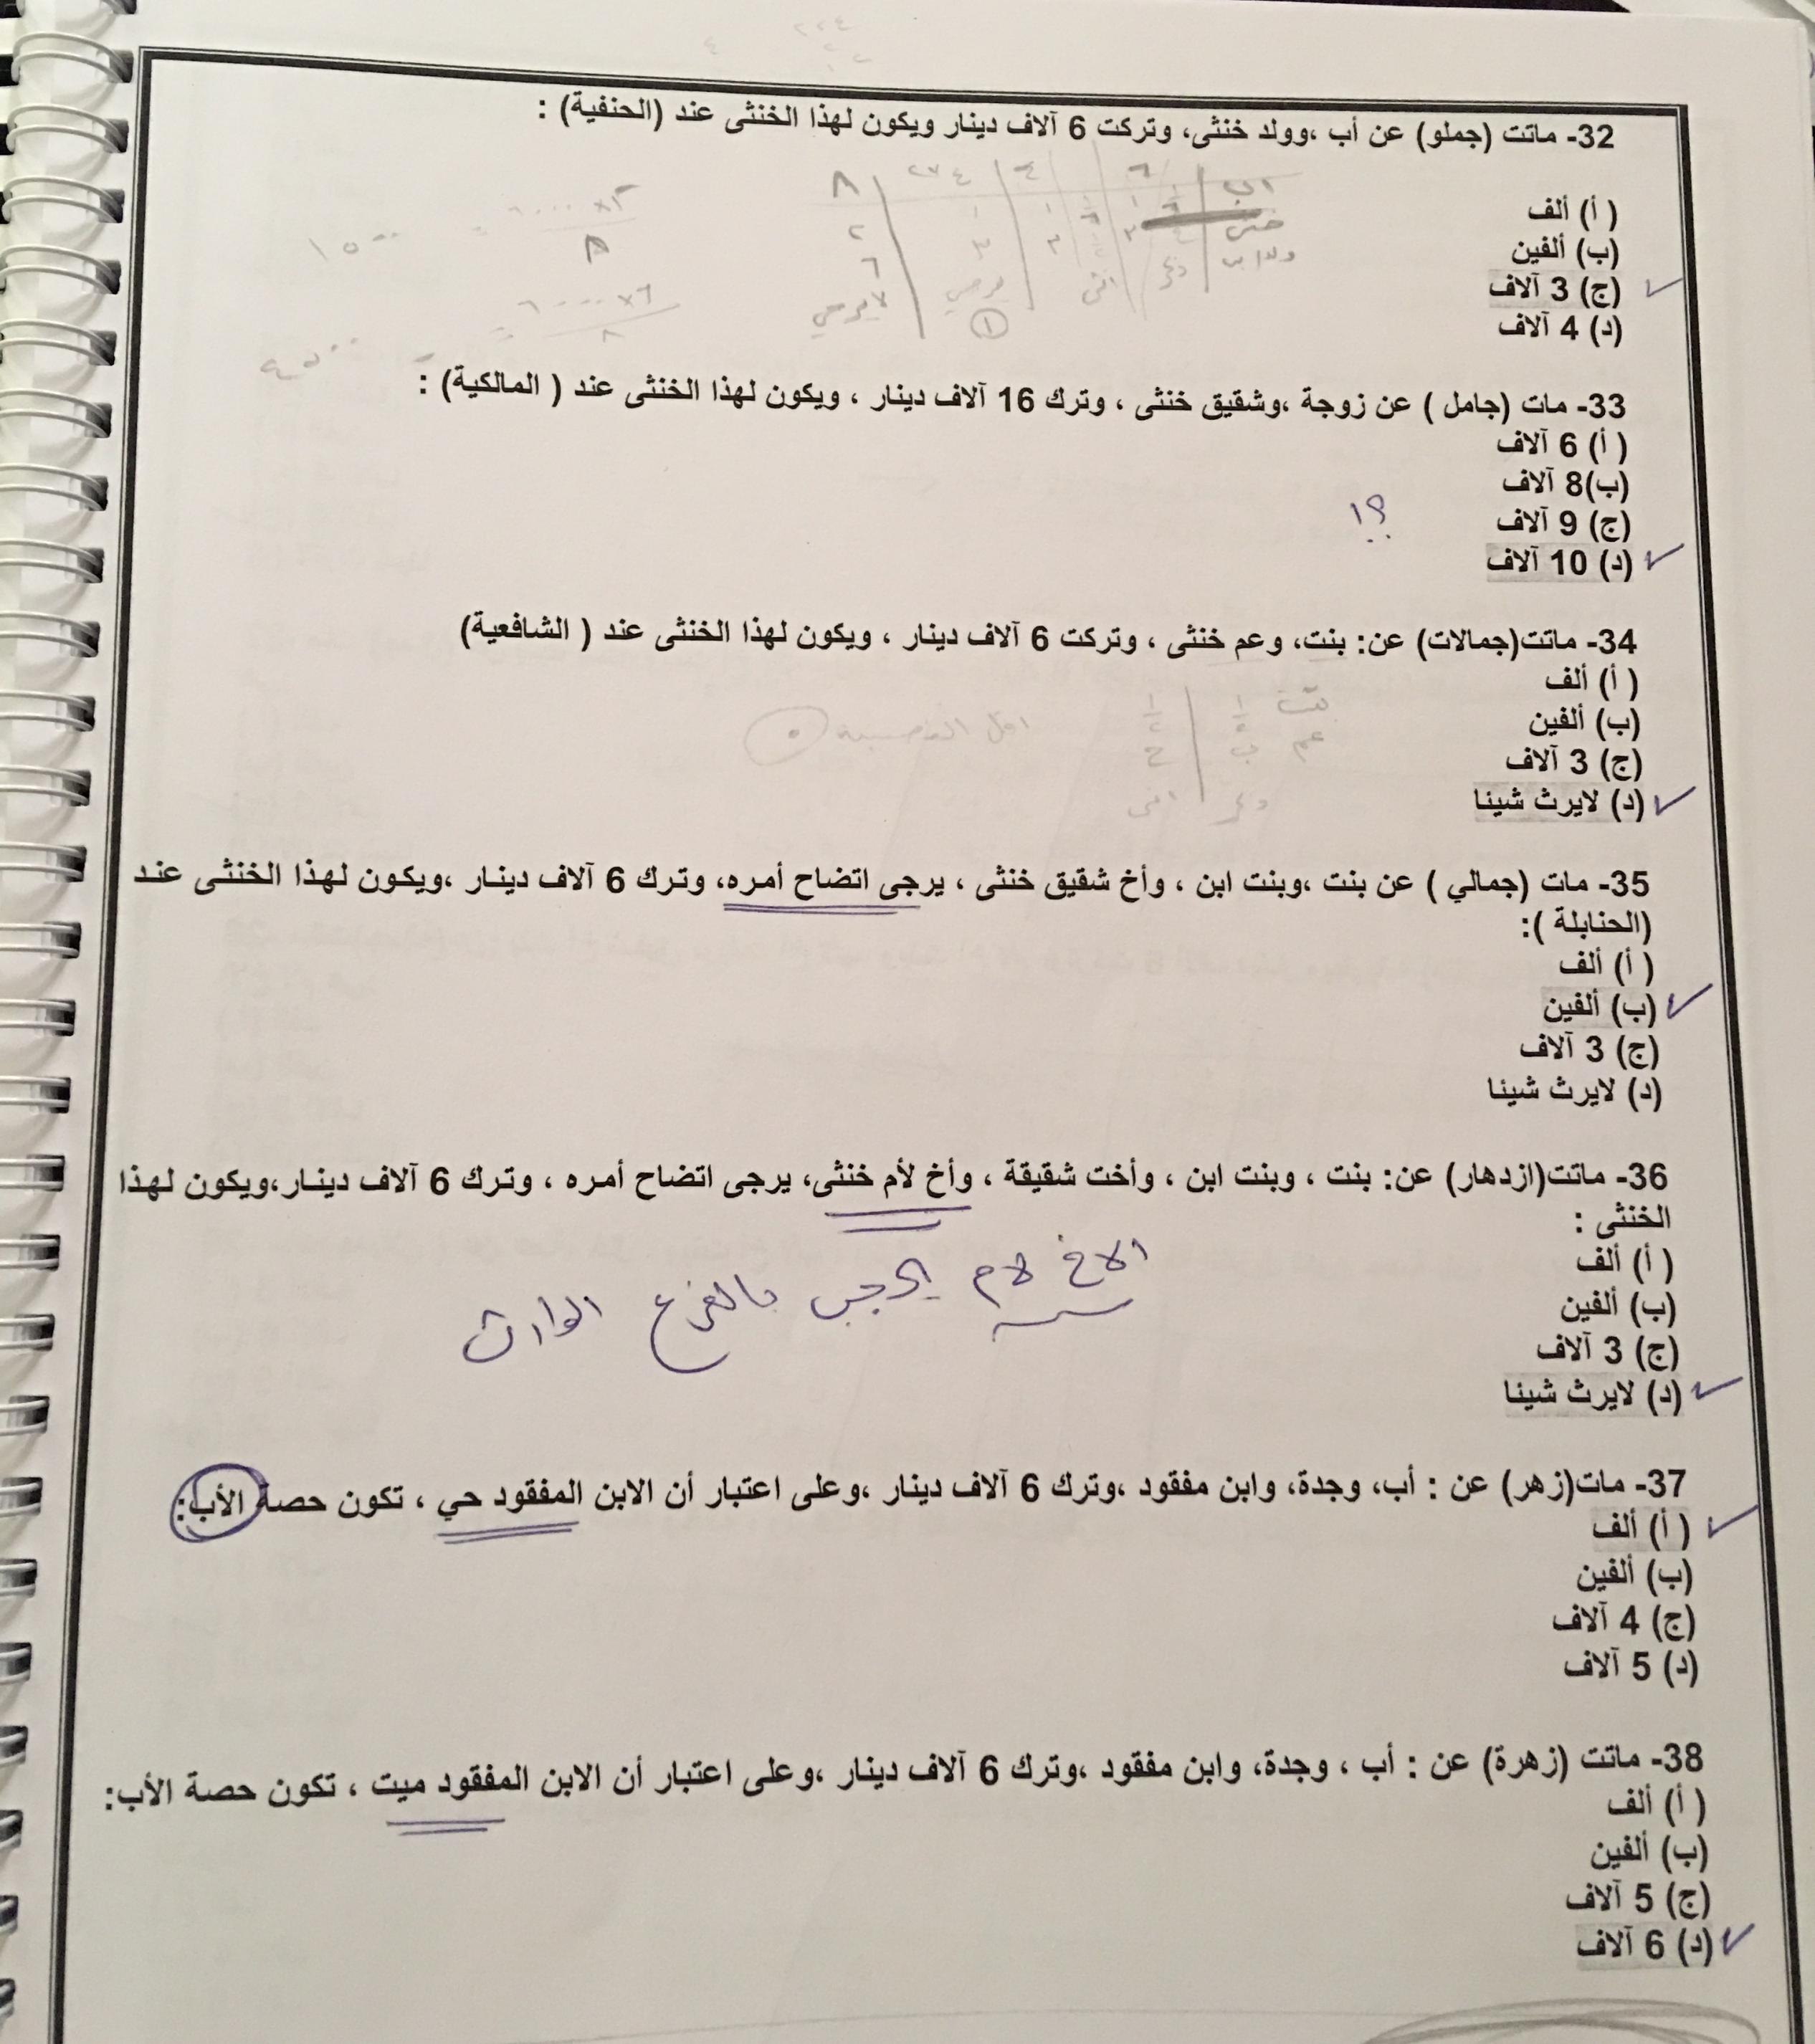 32- ماتت (جملو) عن أب ،وولد خنثى، وتركت 6 آلاف دينار ويكون لهذا الخنثى عند (الحنفية) :
( أ) ألف
(ب) ألفين
(ج) 3 آلاف
(د) 4 آلاف
33- مات (جامل ) عن زوجة ،وشقيق خنثى ، وترك 16 آلاف دينار ، ويكون لهذا الخنثى عند ( المالكية) :
( أ) 6 آلاف
(ب)8 آلاف
(ج) 9 آلاف
(د) 10 آلاف
34- ماتت(جمالات) عن: بنت، وعم خنثى ، وتركت 6 آلاف دينار ، ويكون لهذا الخنثى عند ( الشافعية)
( أ) ألف
(ب) ألفين
(ج) 3 آلاف
(د) لايرث شيئا
بنت
عم
ذكر انثى
35- مات (جمالي ) عن بنت ،وبنت ابن ، وأخ شقيق خنثى ، يرجى اتضاح أمره، وترك 6 آلاف دينار ،ويكون لهذا الخنثى عند
(الحنابلة ):
( أ) ألف
(ب) ألفين
(ج) 3 آلاف
(د) لايرث شيئا
36- ماتت(ازدهار) عن: بنت ، وبنت ابن ، وأخت شقيقة ، وأخ لأم خنثى، يرجى اتضاح أمره ، وترك 6 آلاف دينار،ويكون لهذا
الخنثى :
( أ) ألف
(ب) ألفين
(ج) 3 آلاف
(د) لايرث شيئا
الاخ لام يحجب بالفرع الوارث
37- مات(زهر) عن : أب، وجدة، وابن مفقود ،وترك 6 آلاف دينار ،وعلى اعتبار أن الابن المفقود حي ، تكون حصة الأب:
( أ) ألف
(ب) ألفين
(ج) 4 آلاف
(د) 5 آلاف
38- ماتت (زهرة) عن : أب ، وجدة، وابن مفقود ،وترك 6 آلاف دينار ،وعلى اعتبار أن الابن المفقود ميت ، تكون حصة الأب:
( أ) ألف
(ب) ألفين
(ج) 5 آلاف
(د) 6 آلاف